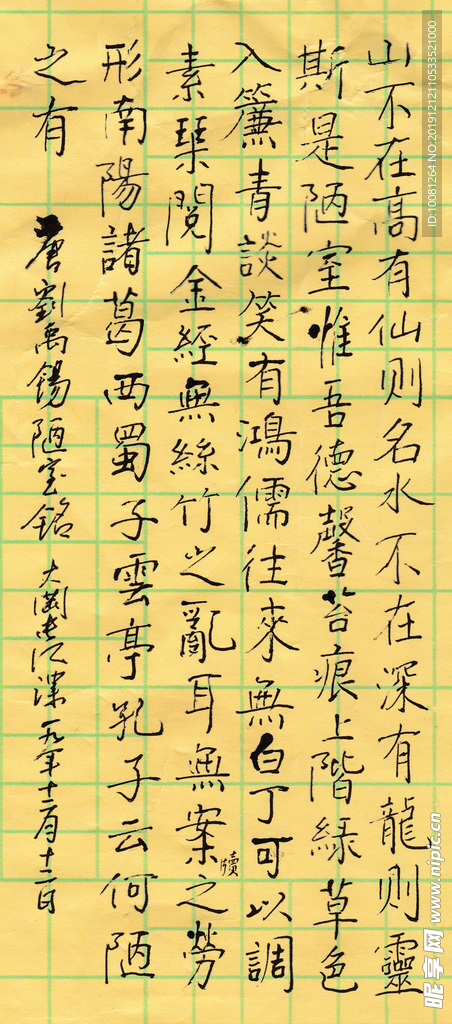 山不在高有仙则名水不在深有龍则靈
斯是陋室惟吾德馨苔痕上階緑草色
入簾青談笑有鴻儒往來無白丁可以調
素琹閲金經無絲竹之亂耳無案牘之勞
形南陽諸葛西蜀子雲亭孔子云何陋
之有 唐劉禹錫陋室銘 一九年十二月十二日
ID:10081264 NO:20191212110533521000
昵享网 www.nipic.cn